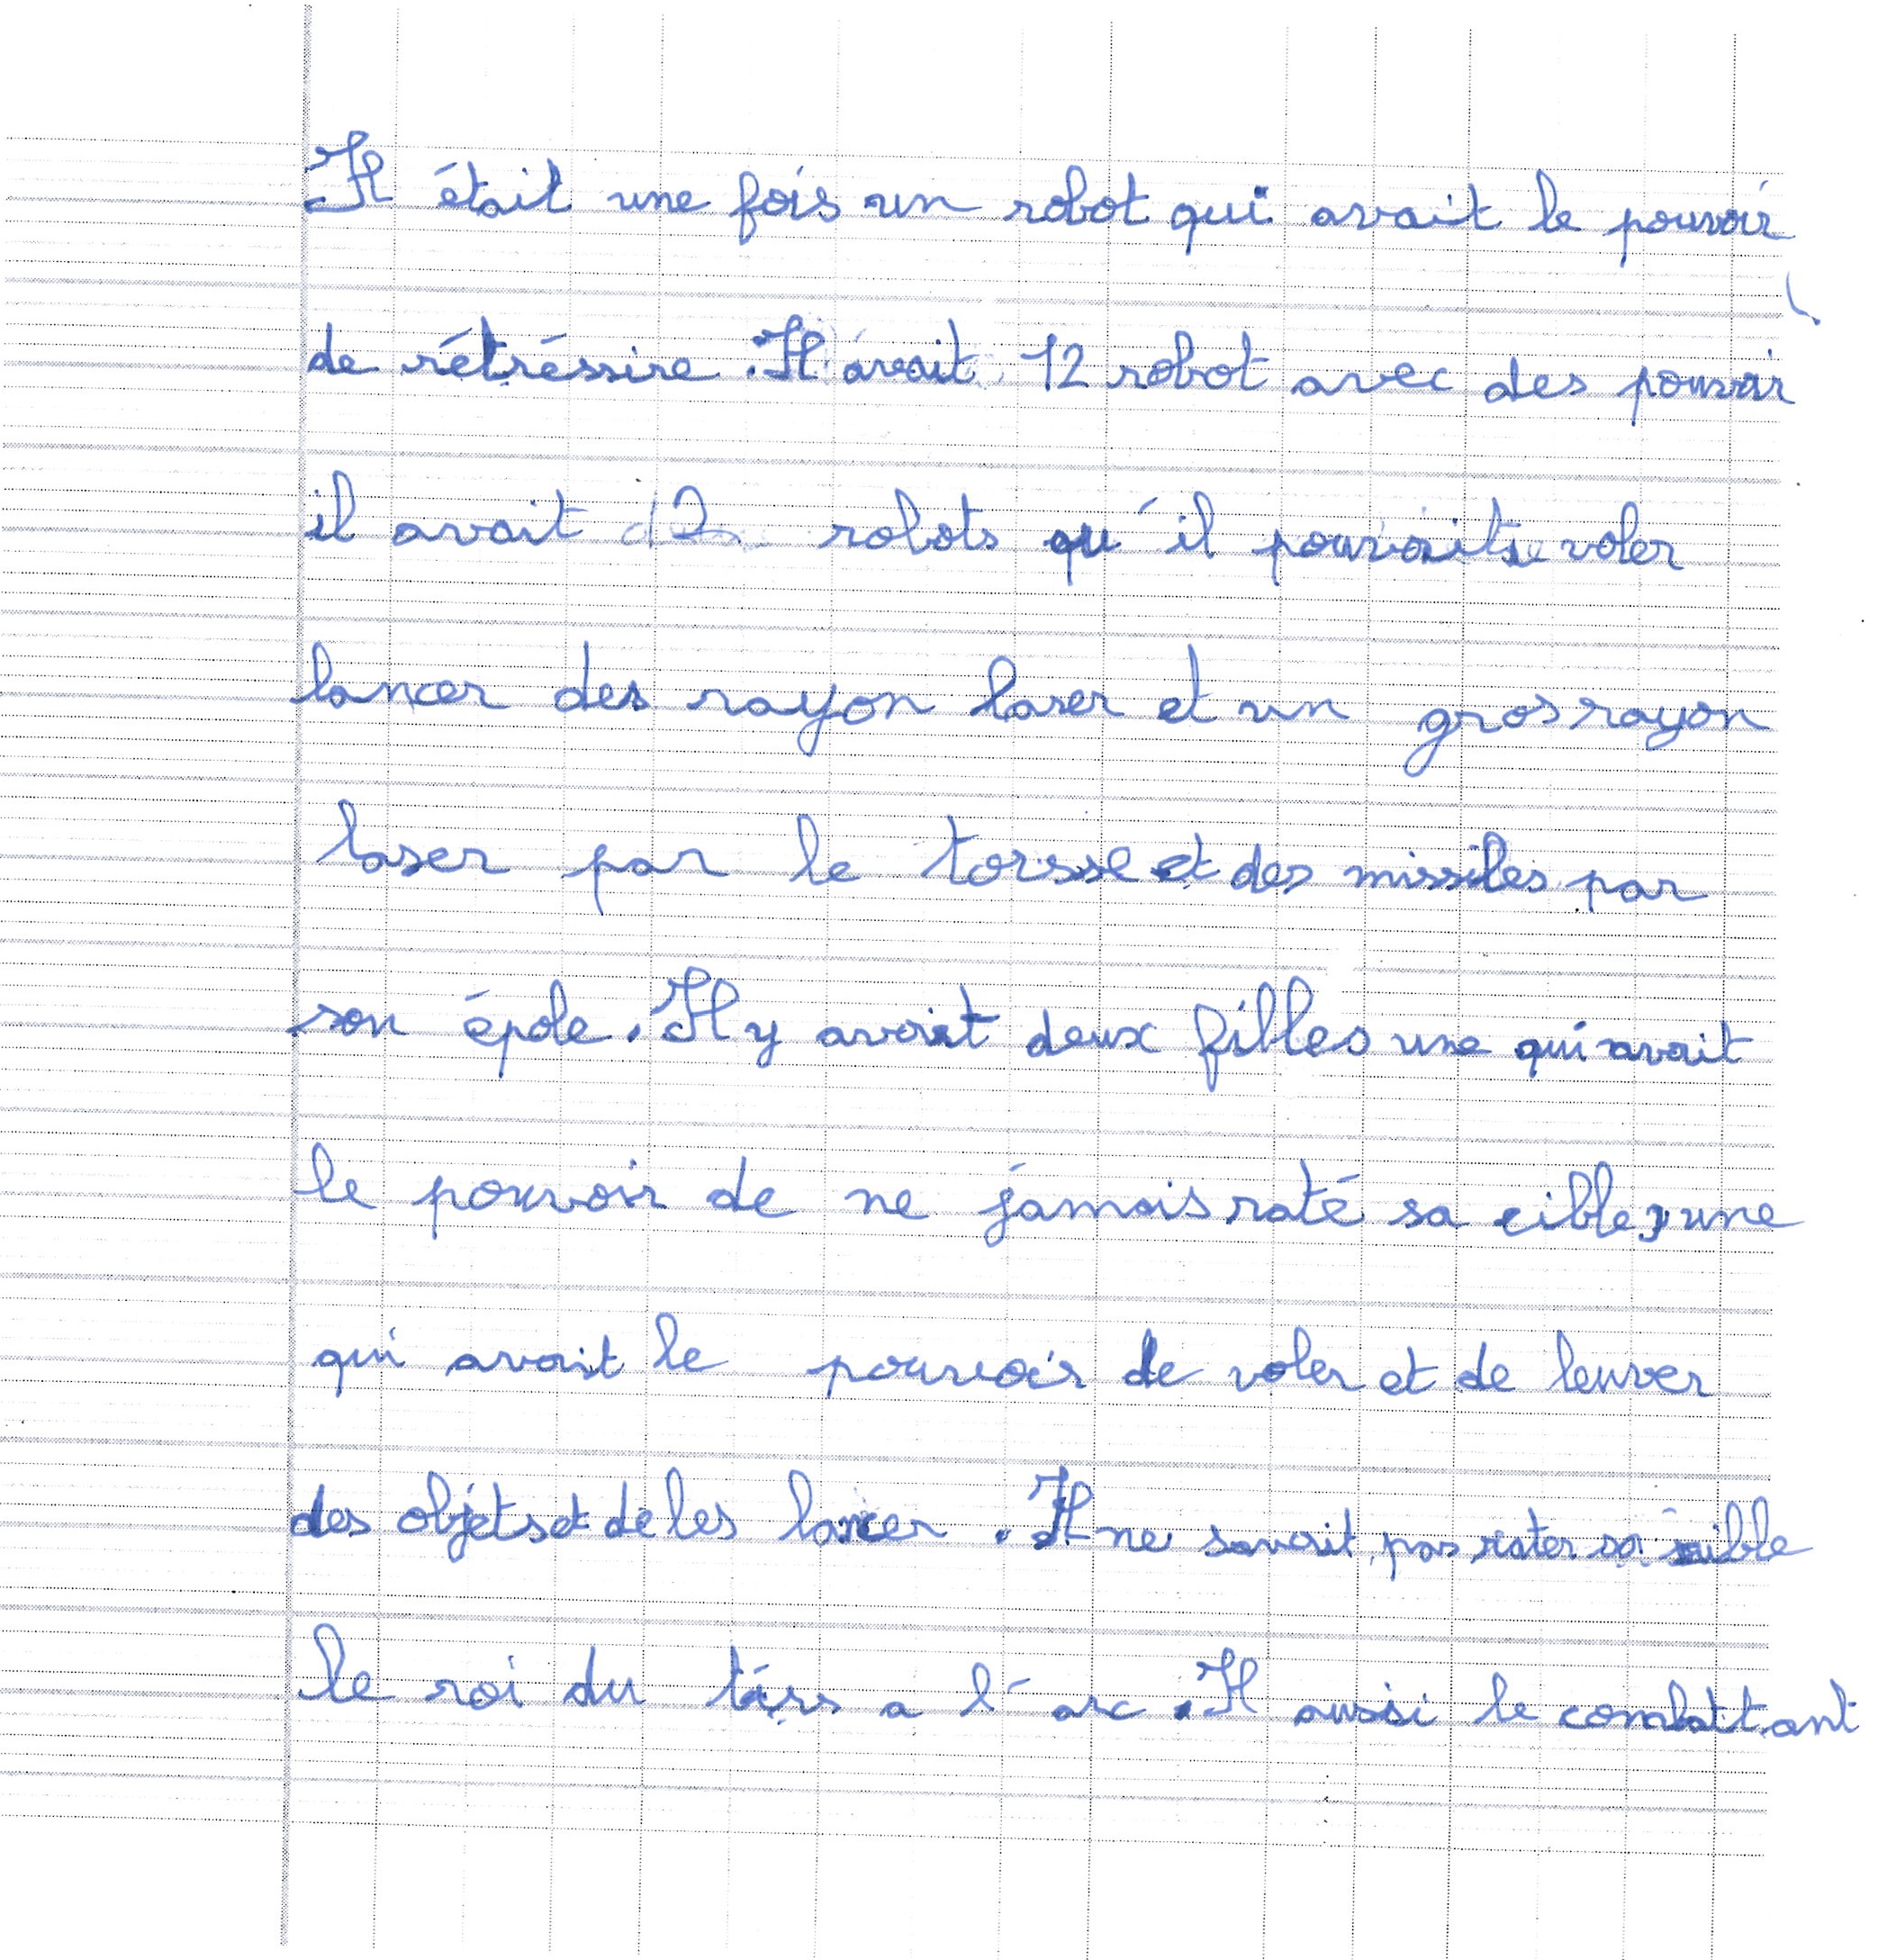 Il était une fois un robot qui avait le pouvoir
de rétréssire. Il avait 12 robot avec des pouvoir
il avait robots qu'il pouvaits voler
lancer des rayon laser et un gros rayon
laser par le torsse et des missiles par
son épole. Il y avait deux filles une qui avait
le pouvoir de ne jamais raté sa cible, une
qui avait le pouvoir de voler et de leuver
des objets et de les lancer. Il ne savait pas rater sa cible
le roi du tirs a l'arc. Il aussi le combattant